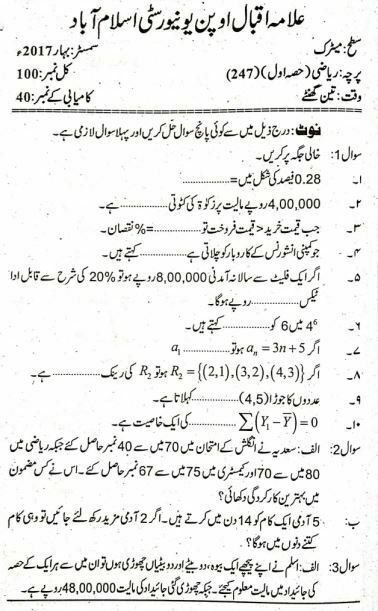 علامہ اقبال اوپن یونیورسٹی اسلام آباد
سطح: میٹرک سمسٹر: بہار 2017ء
پرچہ: ریاضی (حصہ اول) (247) کل نمبر: 100
وقت: تین گھنٹے کامیابی کے نمبر: 40
نوٹ: درج ذیل میں سے کوئی پانچ سوال حل کریں اور پہلا سوال لازمی ہے۔
سوال 1: خالی جگہ پر کریں۔
۱۔ 0.28 فیصد کی شکل میں = ..............
۲۔ 4,00,000 روپے مالیت پر زکوٰۃ کی کٹوتی .............. ہے۔
۳۔ جب قیمت خرید > قیمت فروخت تو .............. =% نقصان۔
۴۔ جو کمپنی انشورنس کے کاروبار کو چلاتی ہے .............. کہتے ہیں۔
۵۔ اگر ایک فلیٹ سے سالانہ آمدنی 8,00,000 روپے ہو تو 20% کی شرح سے قابل ادا
ٹیکس .............. روپے ہوگا۔
۶۔ 4⁶ میں 6 کو .............. کہتے ہیں۔
۷۔ اگر aₙ = 3n + 5 ہو تو .............. a₁
۸۔ اگر R₂ = {(2,1),(3,2),(4,3)} ہو تو R₂ کی رینک .............. ہے۔
۹۔ عددوں کا جوڑا (4,5) .............. کہلاتا ہے۔
۱۰۔ ∑(Yᵢ − Ȳ) = 0 .............. کی ایک خاصیت ہے۔
سوال 2: الف: سعدیہ نے انگلش کے امتحان میں 70 میں سے 40 نمبر حاصل کئے جبکہ ریاضی میں
80 میں سے 70 اور کیمسٹری میں 75 میں سے 67 نمبر حاصل کئے۔ اس نے کس مضمون
میں بہترین کارکردگی دکھائی؟
ب: 5 آدمی ایک کام کو 14 دن میں کرتے ہیں۔ اگر 2 آدمی مزید رکھ لئے جائیں تو وہی کام
کتنے دنوں میں ہوگا؟
سوال 3: الف: اسلم نے اپنے پیچھے ایک بیوہ، دو بیٹے اور دو بیٹیاں چھوڑی ہوں تو ان میں سے ہر ایک کے حصہ
کی جائیداد میں مالیت معلوم کیجئے۔ جبکہ چھوڑی گئی جائیداد کی مالیت 48,00,000 روپے ہے۔